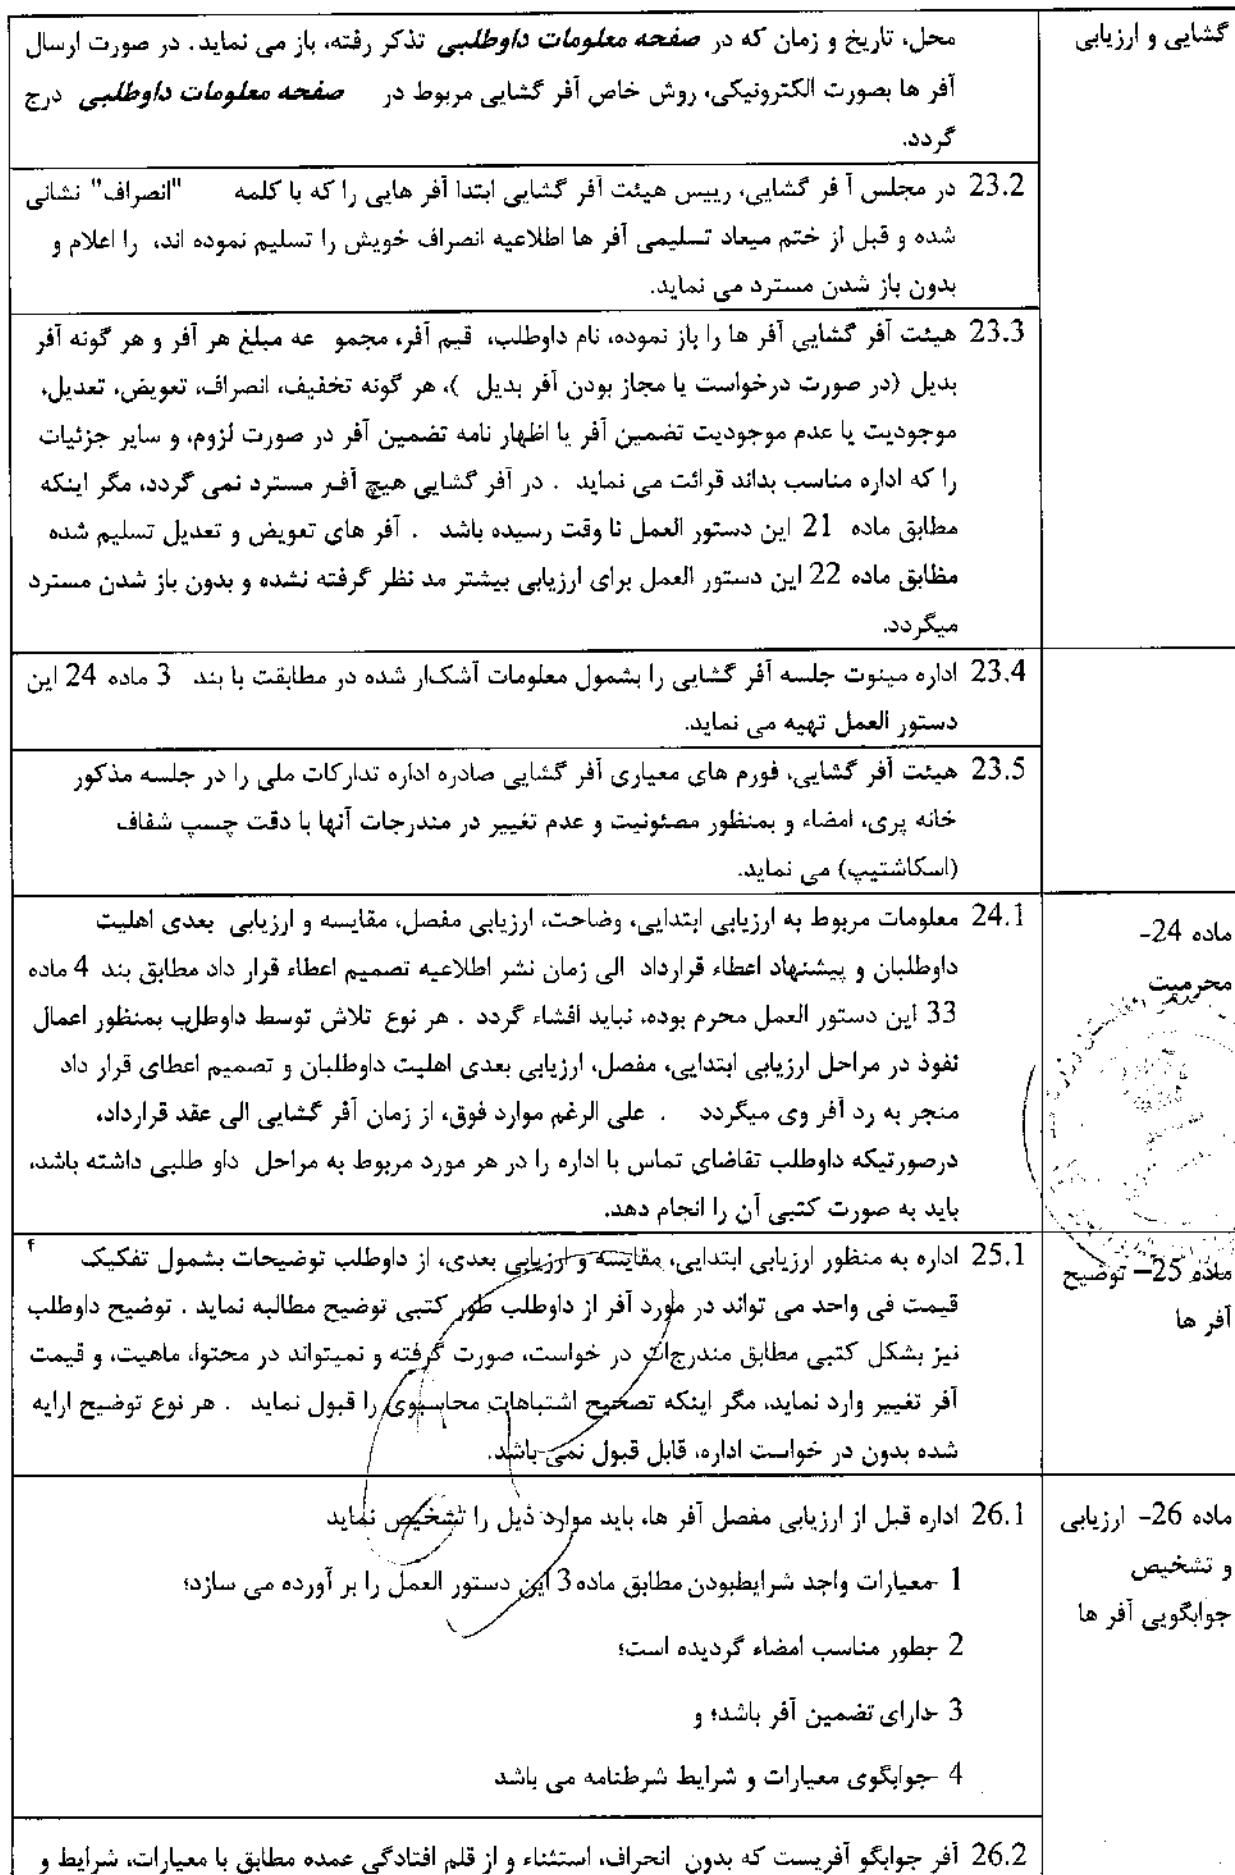 گشایی و ارزیابی
محل، تاریخ و زمان که در صفحه معلومات داوطلبی تذکر رفته، باز می نماید. در صورت ارسال
آفر ها بصورت الکترونیکی، روش خاص آفر گشایی مربوط در صفحه معلومات داوطلبی درج
گردد.
23.2 در مجلس آ فر گشایی، رییس هیئت آفر گشایی ابتدا آفر هایی را که با کلمه "انصراف" نشانی
شده و قبل از ختم میعاد تسلیمی آفر ها اطلاعیه انصراف خویش را تسلیم نموده اند، را اعلام و
بدون باز شدن مسترد می نماید.
23.3 هیئت آفر گشایی آفر ها را باز نموده، نام داوطلب، قیم آفر، مجمو عه مبلغ هر آفر و هر گونه آفر
بدیل (در صورت درخواست یا مجاز بودن آفر بدیل )، هر گونه تخفیف، انصراف، تعویض، تعدیل،
موجودیت یا عدم موجودیت تضمین آفر یا اظهار نامه تضمین آفر در صورت لزوم، و سایر جزئیات
را که اداره مناسب بداند قرائت می نماید . در آفر گشایی هیچ آفر مسترد نمی گردد، مگر اینکه
مطابق ماده 21 این دستور العمل نا وقت رسیده باشد . آفر های تعویض و تعدیل تسلیم شده
مظابق ماده 22 این دستور العمل برای ارزیابی بیشتر مد نظر گرفته نشده و بدون باز شدن مسترد
میگردد.
23.4 اداره مینوت جلسه آفر گشایی را بشمول معلومات آشکار شده در مطابقت با بند 3 ماده 24 این
دستور العمل تهیه می نماید.
23.5 هیئت آفر گشایی، فورم های معیاری آفر گشایی صادره اداره تدارکات ملی را در جلسه مذکور
خانه پری، امضاء و بمنظور مصئونیت و عدم تغییر در مندرجات آنها با دقت چسپ شفاف
(اسکاشتیپ) می نماید.
ماده 24-
محرمیت
24.1 معلومات مربوط به ارزیابی ابتدایی، وضاحت، ارزیابی مفصل، مقایسه و ارزیابی بعدی اهلیت
داوطلبان و پیشنهاد اعطاء قرارداد الی زمان نشر اطلاعیه تصمیم اعطاء قرار داد مطابق بند 4 ماده
33 این دستور العمل محرم بوده، نباید افشاء گردد . هر نوع تلاش توسط داوطلب بمنظور اعمال
نفوذ در مراحل ارزیابی ابتدایی، مفصل، ارزیابی بعدی اهلیت داوطلبان و تصمیم اعطای قرار داد
منجر به رد آفر وی میگردد . علی الرغم موارد فوق، از زمان آفر گشایی الی عقد قرارداد،
درصورتیکه داوطلب تقاضای تماس با اداره را در هر مورد مربوط به مراحل داو طلبی داشته باشد،
باید به صورت کتبی آن را انجام دهد.
ماده 25– توضیح
آفر ها
25.1 اداره به منظور ارزیابی ابتدایی، مقایسه و ارزیابی بعدی، از داوطلب توضیحات بشمول تفکیک
قیمت فی واحد می تواند در مورد آفر از داوطلب طور کتبی توضیح مطالبه نماید . توضیح داوطلب
نیز بشکل کتبی مطابق مندرجات در خواست، صورت گرفته و نمیتواند در محتوا، ماهیت، و قیمت
آفر تغییر وارد نماید، مگر اینکه تصحیح اشتباهات محاسبوی را قبول نماید . هر نوع توضیح ارایه
شده بدون در خواست اداره، قابل قبول نمی باشد.
ماده 26- ارزیابی
و تشخیص
جوابگویی آفر ها
26.1 اداره قبل از ارزیابی مفصل آفر ها، باید موارد ذیل را تشخیص نماید
1 -معیارات واجد شرایطبودن مطابق ماده 3 این دستور العمل را بر آورده می سازد؛
2 -بطور مناسب امضاء گردیده است؛
3 -دارای تضمین آفر باشد؛ و
4 -جوابگوی معیارات و شرایط شرطنامه می باشد
26.2 آفر جوابگو آفریست که بدون انحراف، استثناء و از قلم افتادگی عمده مطابق با معیارات، شرایط و